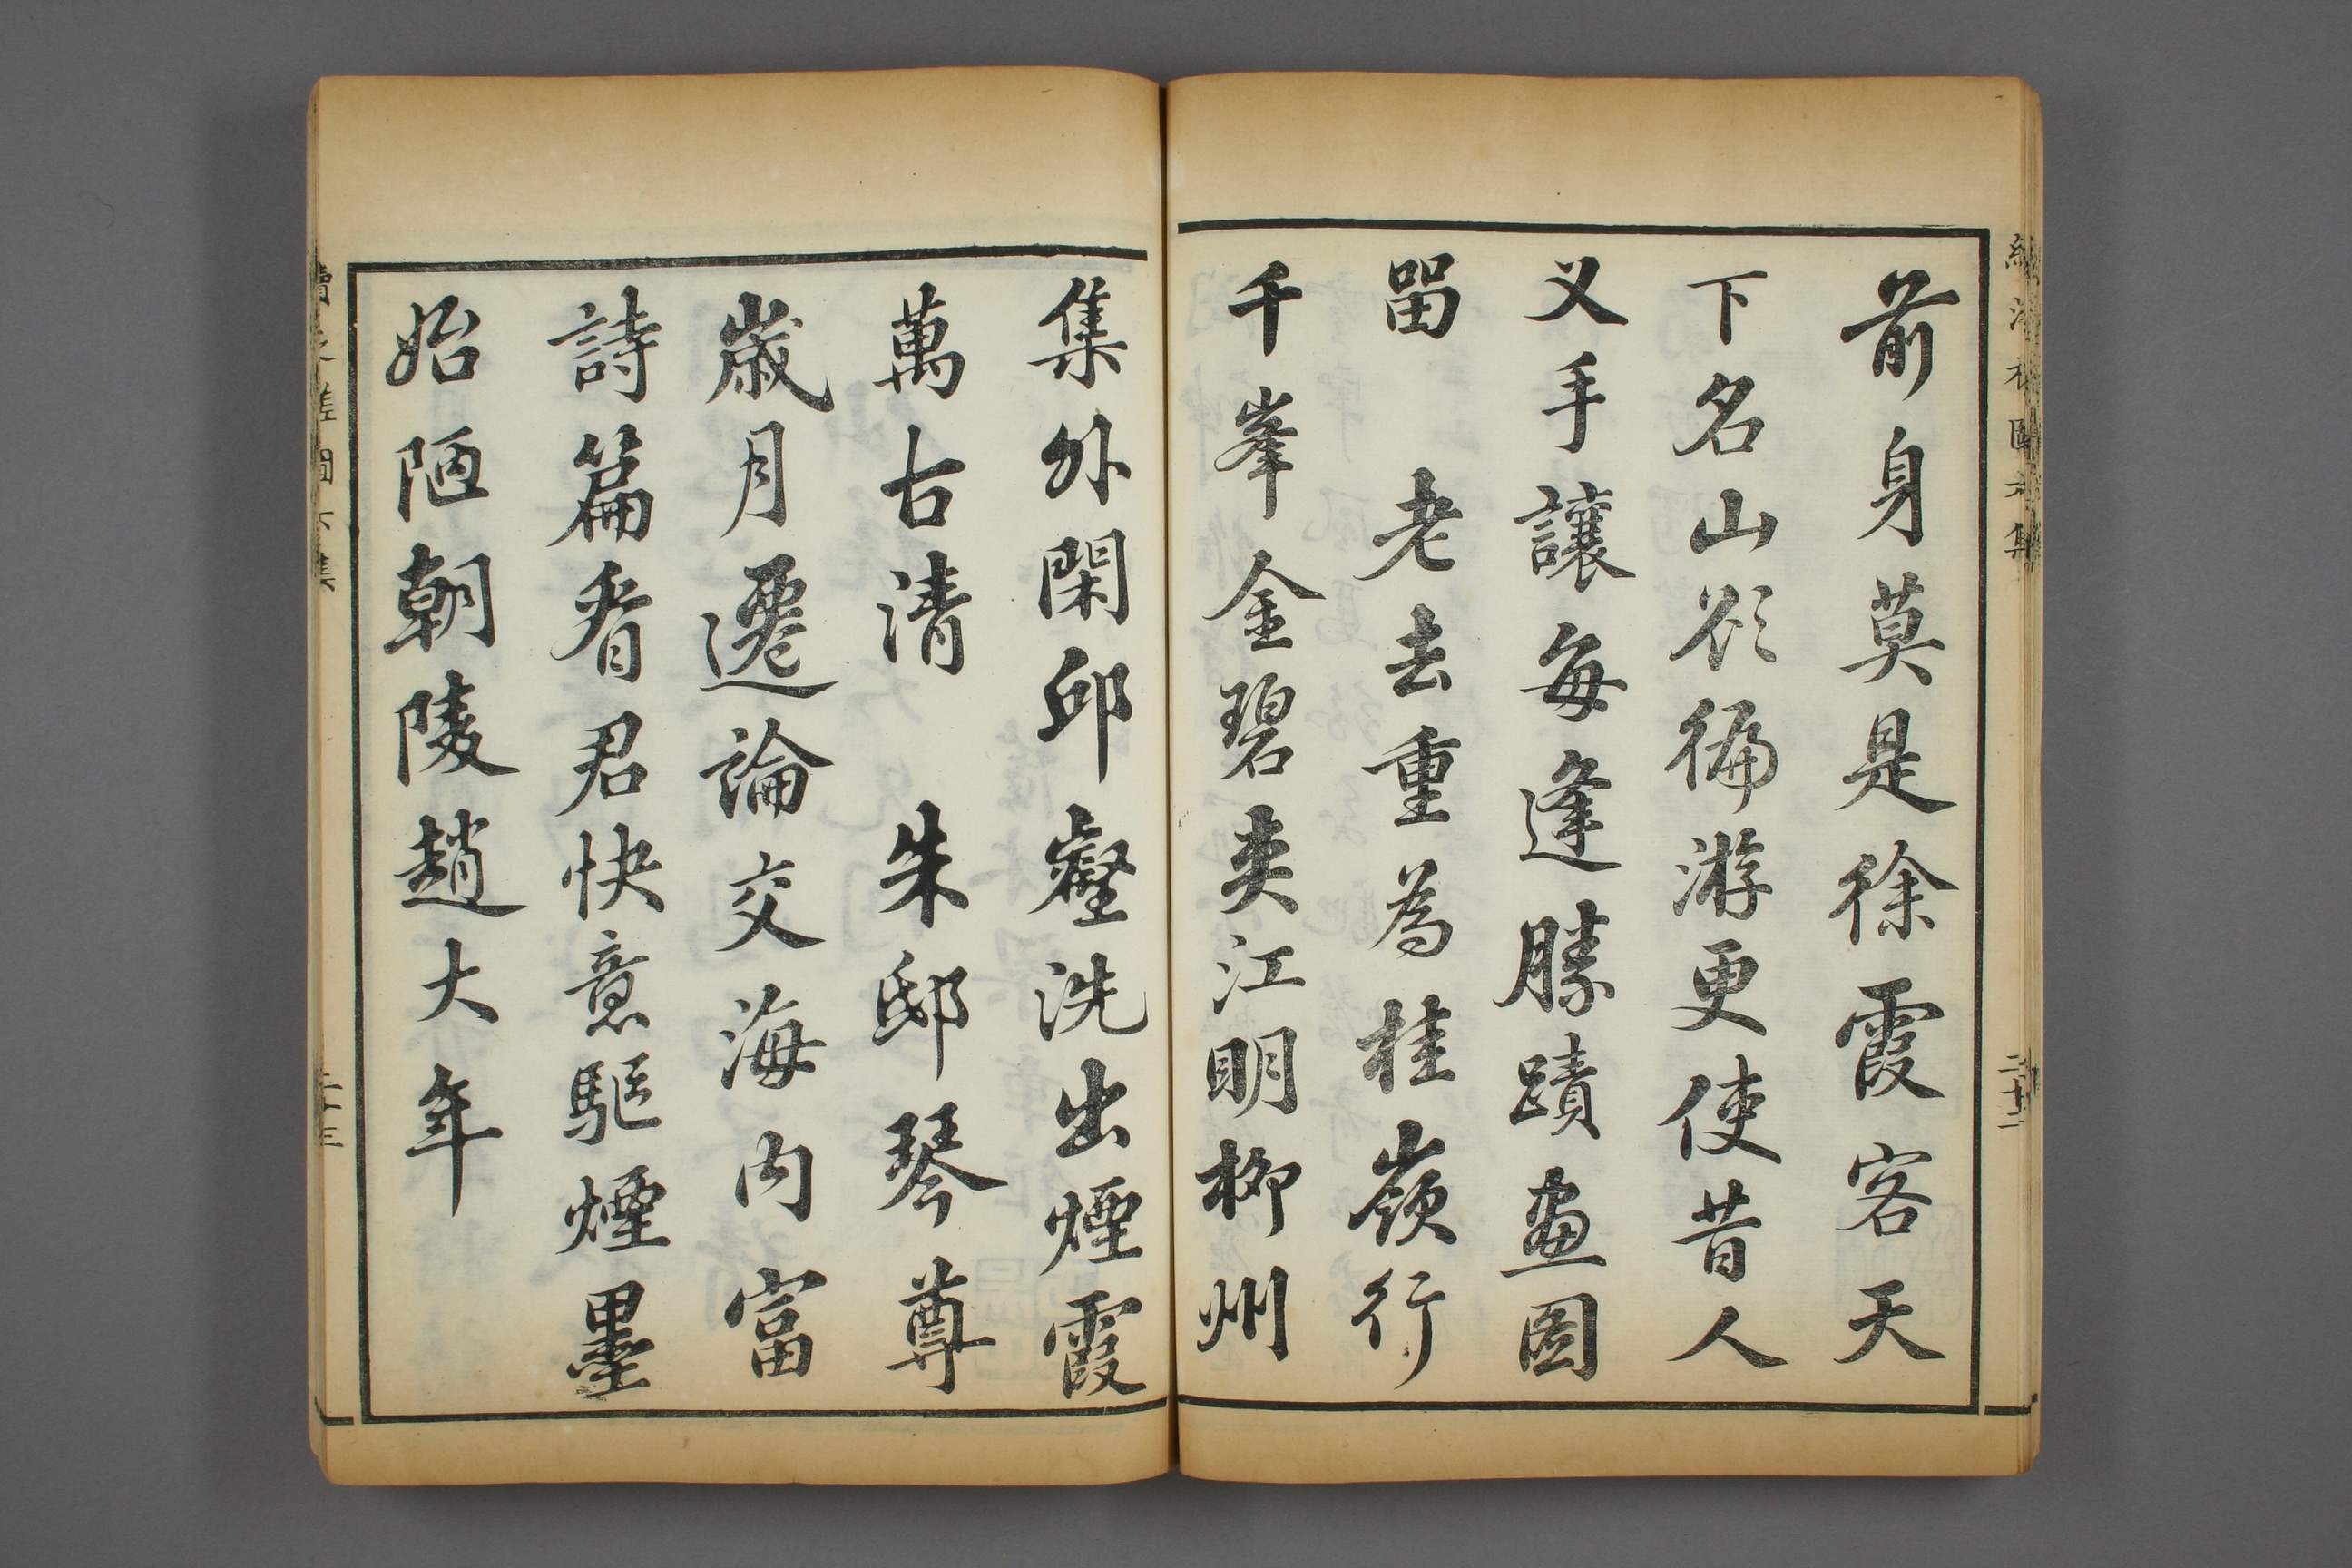 前身莫是徐霞客天
下名山欲徧游更使昔人
叉手讓每逢勝蹟畫圖
留 老去重為桂嶺行
千峯金碧夾江明柳州
集外閑邱壑洗出煙霞
萬古清 朱邸琴尊
歲月遷論交海內富
詩篇看君快意驅煙墨
始陋朝陵趙大年
二十二